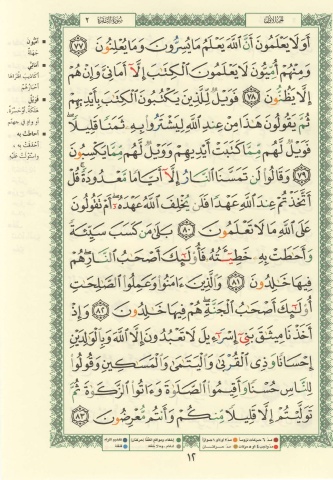 الجزء الأول
سورة البقرة ٢
أَوَلَا يَعْلَمُونَ أَنَّ ٱللَّهَ يَعْلَمُ مَا يُسِرُّونَ وَمَا يُعْلِنُونَ ٧٧
وَمِنْهُمْ أُمِّيُّونَ لَا يَعْلَمُونَ ٱلْكِتَٰبَ إِلَّآ أَمَانِىَّ وَإِنْ هُمْ
إِلَّا يَظُنُّونَ ٧٨ فَوَيْلٌ لِّلَّذِينَ يَكْتُبُونَ ٱلْكِتَٰبَ بِأَيْدِيهِمْ
ثُمَّ يَقُولُونَ هَٰذَا مِنْ عِندِ ٱللَّهِ لِيَشْتَرُوا۟ بِهِۦ ثَمَنًا قَلِيلًا
فَوَيْلٌ لَّهُم مِّمَّا كَتَبَتْ أَيْدِيهِمْ وَوَيْلٌ لَّهُم مِّمَّا يَكْسِبُونَ
٧٩ وَقَالُوا۟ لَن تَمَسَّنَا ٱلنَّارُ إِلَّآ أَيَّامًا مَّعْدُودَةً قُلْ
أَتَّخَذْتُمْ عِندَ ٱللَّهِ عَهْدًا فَلَن يُخْلِفَ ٱللَّهُ عَهْدَهُۥٓ أَمْ تَقُولُونَ
عَلَى ٱللَّهِ مَا لَا تَعْلَمُونَ ٨٠ بَلَىٰ مَن كَسَبَ سَيِّئَةً
وَأَحَٰطَتْ بِهِۦ خَطِيٓـَٔتُهُۥ فَأُو۟لَٰٓئِكَ أَصْحَٰبُ ٱلنَّارِ هُمْ
فِيهَا خَٰلِدُونَ ٨١ وَٱلَّذِينَ ءَامَنُوا۟ وَعَمِلُوا۟ ٱلصَّٰلِحَٰتِ
أُو۟لَٰٓئِكَ أَصْحَٰبُ ٱلْجَنَّةِ هُمْ فِيهَا خَٰلِدُونَ ٨٢ وَإِذْ
أَخَذْنَا مِيثَٰقَ بَنِىٓ إِسْرَٰٓءِيلَ لَا تَعْبُدُونَ إِلَّا ٱللَّهَ وَبِٱلْوَٰلِدَيْنِ
إِحْسَانًا وَذِى ٱلْقُرْبَىٰ وَٱلْيَتَٰمَىٰ وَٱلْمَسَٰكِينِ وَقُولُوا۟
لِلنَّاسِ حُسْنًا وَأَقِيمُوا۟ ٱلصَّلَوٰةَ وَءَاتُوا۟ ٱلزَّكَوٰةَ ثُمَّ
تَوَلَّيْتُمْ إِلَّا قَلِيلًا مِّنكُمْ وَأَنتُم مُّعْرِضُونَ ٨٣
أميّون
جهلة
أماني
أكاذيب افتراها
أحبارهم
فويل
أو واد في جهنم
أحاطت به
أحدقت به
واستولت عليه
١٢